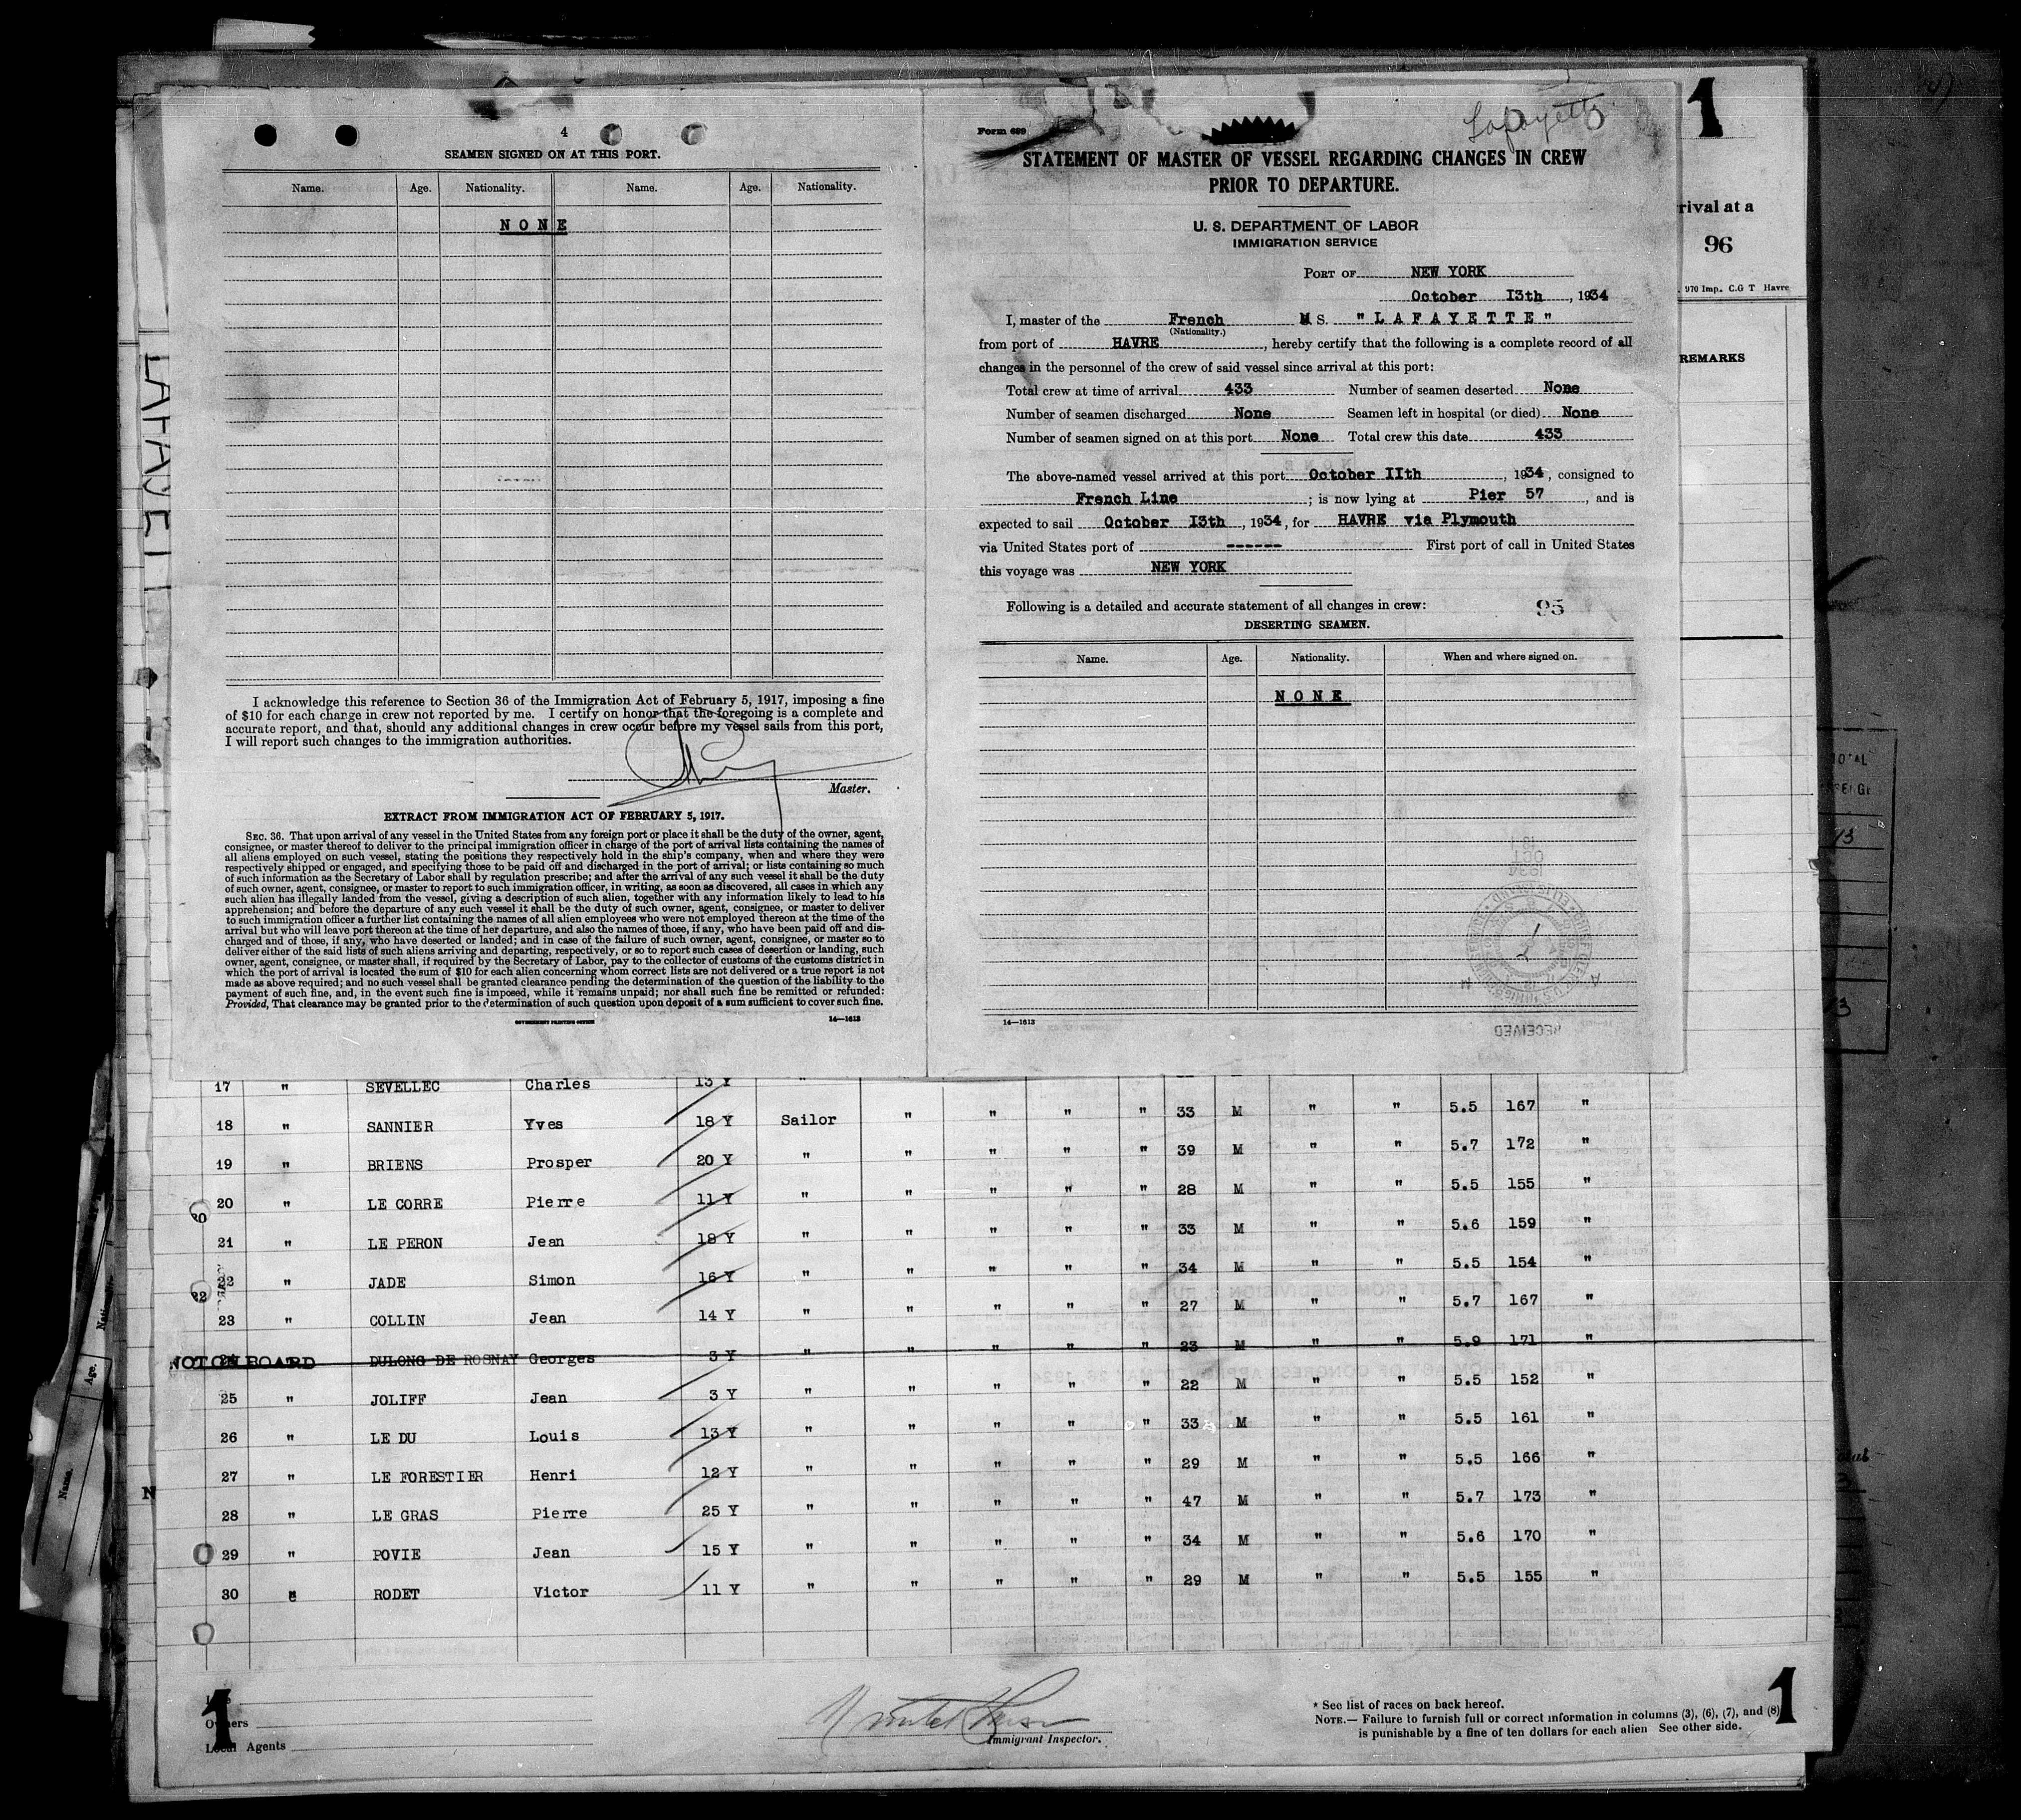 4
SEAMEN SIGNED ON AT THIS PORT.
Name. Age. Nationality. Name. Age. Nationality.
NONE
I acknowledge this reference to Section 36 of the Immigration Act of February 5, 1917, imposing a fine
of $10 for each change in crew not reported by me. I certify on honor that the foregoing is a complete and
accurate report, and that, should any additional changes in crew occur before my vessel sails from this port,
I will report such changes to the immigration authorities.
Master.
EXTRACT FROM IMMIGRATION ACT OF FEBRUARY 5, 1917.
SEC. 36. That upon arrival of any vessel in the United States from any foreign port or place it shall be the duty of the owner, agent,
consignee, or master thereof to deliver to the principal immigration officer in charge of the port of arrival lists containing the names of
all aliens employed on such vessel, stating the positions they respectively hold in the ship's company, when and where they were
respectively shipped or engaged, and specifying those to be paid off and discharged in the port of arrival; or lists containing so much
of such information as the Secretary of Labor shall by regulation prescribe; and after the arrival of any such vessel it shall be the duty
of such owner, agent, consignee, or master to report to such immigration officer, in writing, as soon as discovered, all cases in which any
such alien has illegally landed from the vessel, giving a description of such alien, together with any information likely to lead to his
apprehension; and before the departure of any such vessel it shall be the duty of such owner, agent, consignee, or master to deliver
to such immigration officer a further list containing the names of all alien employees who were not employed thereon at the time of the
arrival but who will leave port thereon at the time of her departure, and also the names of those, if any, who have been paid off and dis-
charged and of those, if any, who have deserted or landed; and in case of the failure of such owner, agent, consignee, or master so to
deliver either of the said lists of such aliens arriving and departing, respectively, or so to report such cases of desertion or landing, such
owner, agent, consignee, or master shall, if required by the Secretary of Labor, pay to the collector of customs of the customs district in
which the port of arrival is located the sum of $10 for each alien concerning whom correct lists are not delivered or a true report is not
made as above required; and no such vessel shall be granted clearance pending the determination of the question of the liability to the
payment of such fine, and, in the event such fine is imposed, while it remains unpaid; nor shall such fine be remitted or refunded:
Provided, That clearance may be granted prior to the determination of such question upon deposit of a sum sufficient to cover such fine.
GOVERNMENT PRINTING OFFICE 14—1613
Form 689
Lafayette
STATEMENT OF MASTER OF VESSEL REGARDING CHANGES IN CREW
PRIOR TO DEPARTURE.
U. S. DEPARTMENT OF LABOR
IMMIGRATION SERVICE
PORT OF NEW YORK
October I3th, 1934
I, master of the French M S. "LAFAYETTE"
(Nationality.)
from port of HAVRE, hereby certify that the following is a complete record of all
changes in the personnel of the crew of said vessel since arrival at this port:
Total crew at time of arrival 433 Number of seamen deserted None
Number of seamen discharged None Seamen left in hospital (or died) None
Number of seamen signed on at this port None Total crew this date 433
The above-named vessel arrived at this port October IIth, 1934, consigned to
French Line; is now lying at Pier 57, and is
expected to sail October I3th, 1934, for HAVRE via Plymouth
via United States port of ------ First port of call in United States
this voyage was NEW YORK
Following is a detailed and accurate statement of all changes in crew: 95
DESERTING SEAMEN.
Name. Age. Nationality. When and where signed on.
NONE
RECEIVED
14—1613
1
rival at a
96
970 Imp. C.G T Havre
REMARKS
LAFAYETT
17 " SEVELLEC Charles 13 Y "
18 " SANNIER Yves 18 Y Sailor " " " " 33 M " " 5.5 167 "
19 " BRIENS Prosper 20 Y " " " " " 39 M " " 5.7 172 "
20 " LE CORRE Pierre 11 Y " " " " " 28 M " " 5.5 155 "
21 " LE PERON Jean 18 Y " " " " " 33 M " " 5.6 159 "
22 " JADE Simon 16 Y " " " " " 34 M " " 5.5 154 "
23 " COLLIN Jean 14 Y " " " " " 27 M " " 5.7 167 "
NOT ON BOARD 24 DULONG DE ROSNAY Georges 3 Y " " " " " 23 M " " 5.9 171 "
25 " JOLIFF Jean 3 Y " " " " " 22 M " " 5.5 152 "
26 " LE DU Louis 13 Y " " " " " 33 M " " 5.5 161 "
27 " LE FORESTIER Henri 12 Y " " " " " 29 M " " 5.5 166 "
28 " LE GRAS Pierre 25 Y " " " " " 47 M " " 5.7 173 "
29 " POVIE Jean 15 Y " " " " " 34 M " " 5.6 170 "
30 " RODET Victor 11 Y " " " " " 29 M " " 5.5 155 "
1
Owners
Local Agents
Immigrant Inspector.
* See list of races on back hereof.
NOTE.— Failure to furnish full or correct information in columns (3), (6), (7), and (8)
is punishable by a fine of ten dollars for each alien See other side.
1
Name. Age.